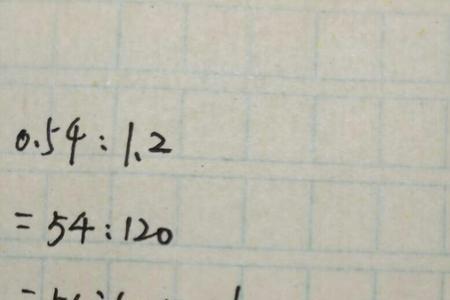 0.54:1.2
=54:120